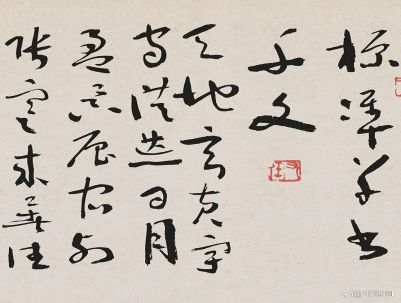 標準草書
千文
右任
天地玄黃宇
宙洪荒日月
盈昃辰宿列
張寒來暑往